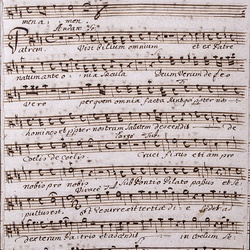 mena men
Andante
Patrem Visibilium omnium et ex Patre
natum ante o nia Secula Deum Verum de Deo
Vero per quem omnia facta sunt qui propter no
homines et propter nostram Salutem descendit de
Coelis de coelis Cruci fixus eti am pro
nobis pro nobis Sub Pontio Pilato passus et se
pultus est et resurrexit tertia di e
dexteram Patris et